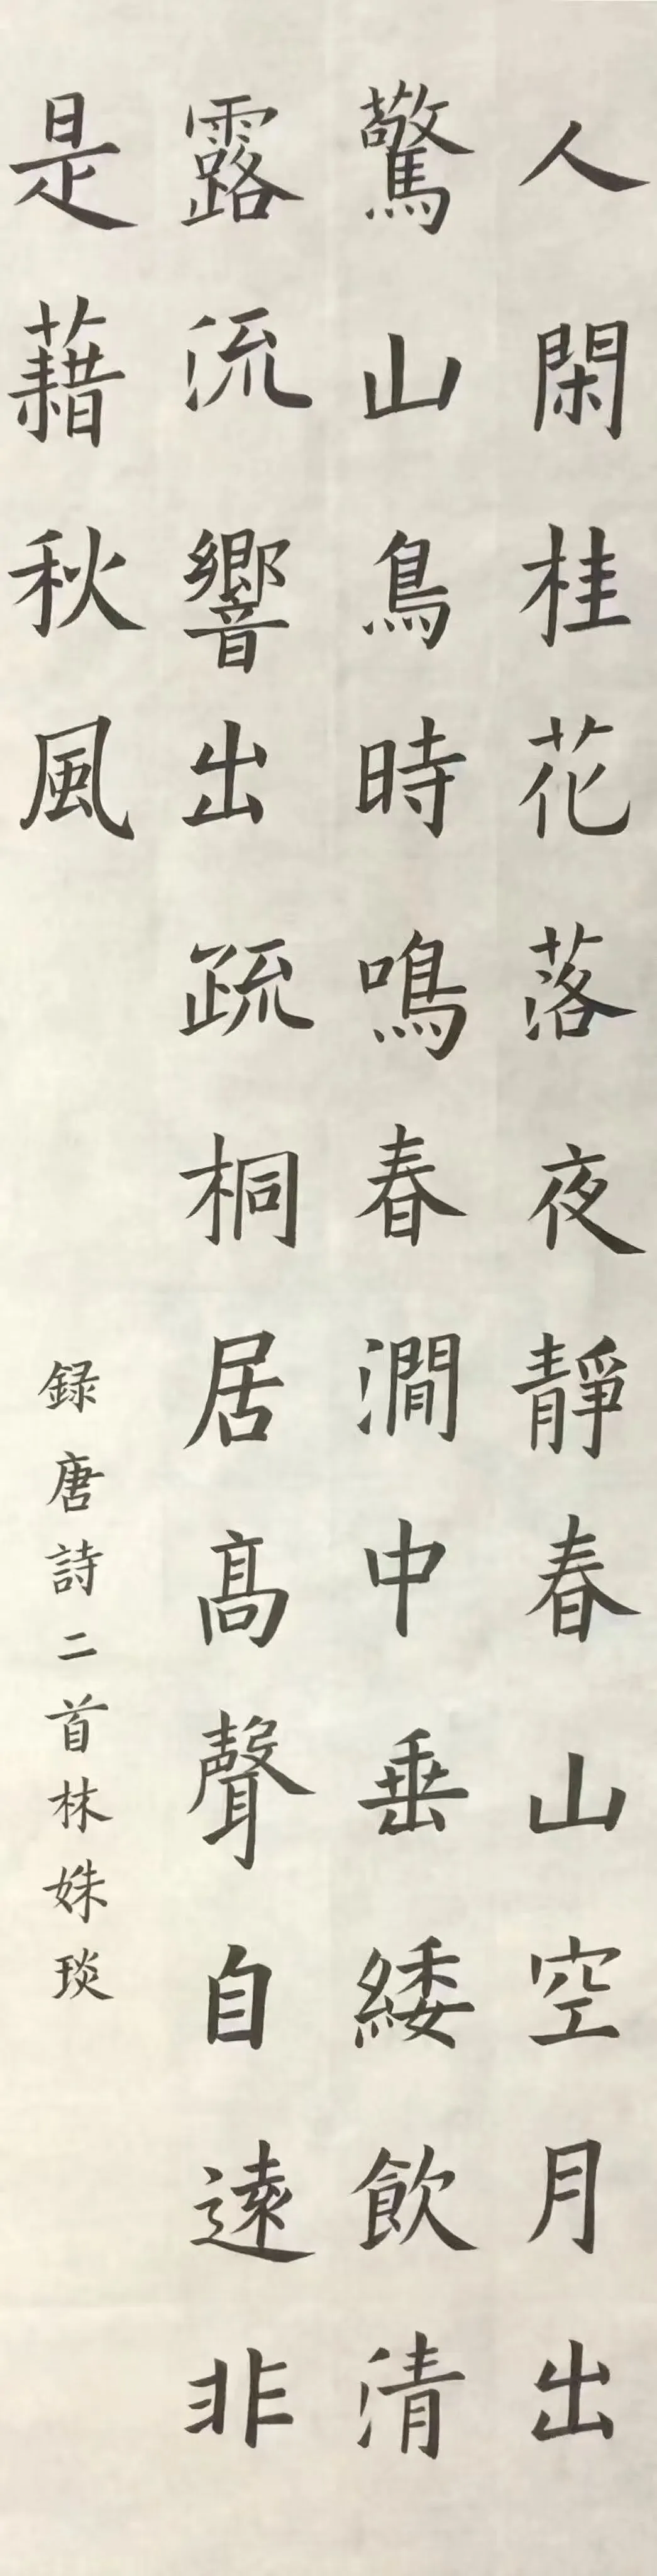 人閑桂花落夜靜春山空月出
驚山鳥時鳴春澗中垂緌飲清
露流響出疏桐居高聲自遠非
是藉秋風
録唐詩二首林姝琰